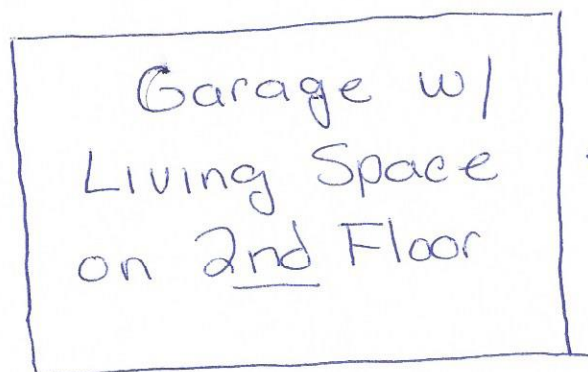 Garage w/
Living Space
on 2nd Floor